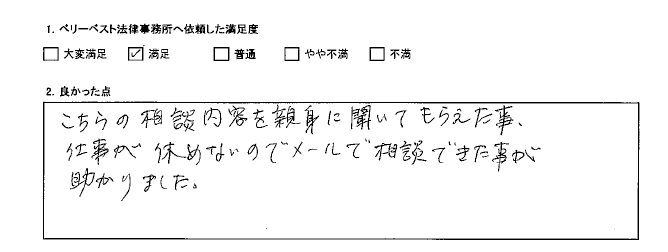 1. ベリーベスト法律事務所へ依頼した満足度
□ 大変満足 ☑ 満足 □ 普通 □ やや不満 □ 不満
2. 良かった点
こちらの相談内容を親身に聞いてもらえた事、
仕事が休めないのでメールで相談できた事が
助かりました。